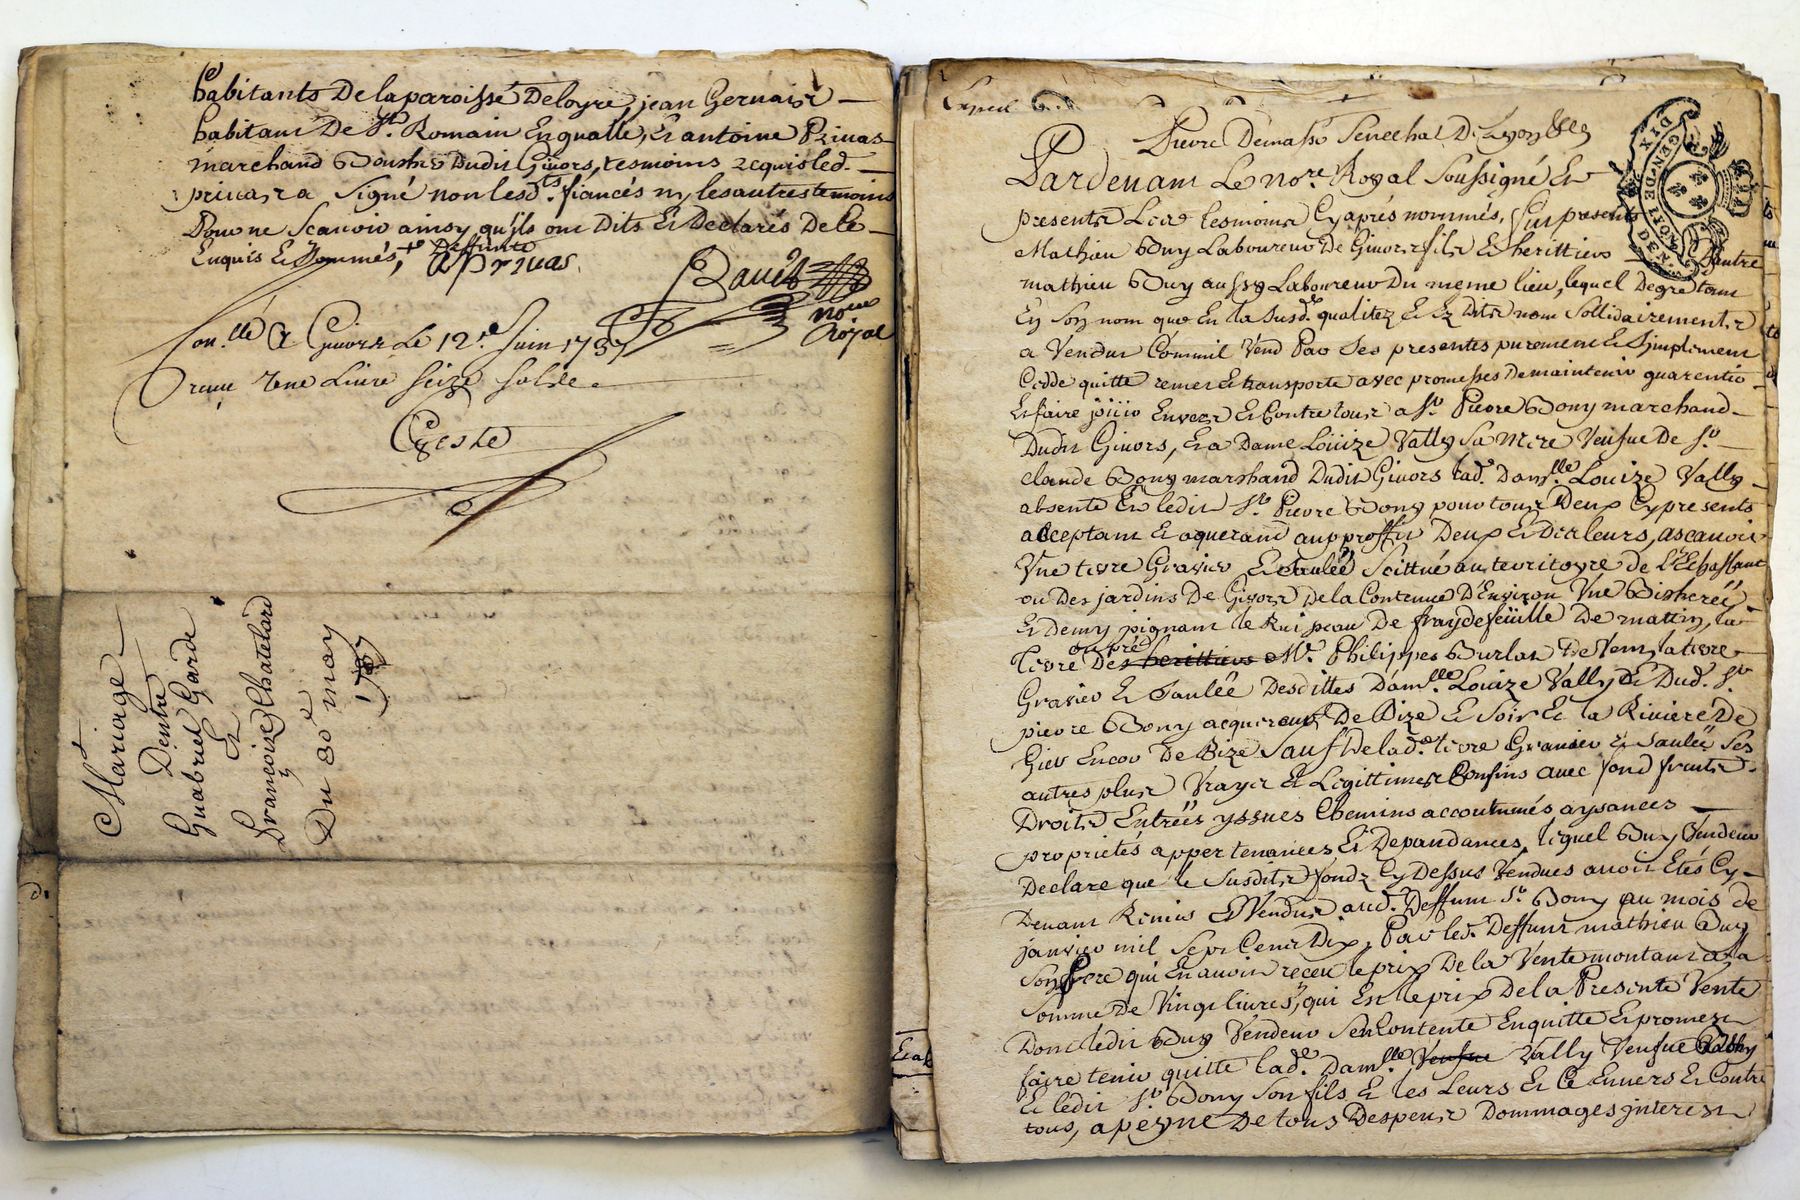 habitants De la paroisse De loyre, jean Gervais
habitant De St. Romain En gualle, Et antoine Privas
marchand Boucher Dudit Givors, tesmoins requis led.
privas a Signé non lesdts. fiancés ny les autres temoins
Pour ne Scavoir ainsy qu'ils ont Dits Et Declarés De ce
Enquis Et Sommés, + Deffunte
A privas.
nore
Royal
Con.llé A Givors Le 12e. Juin 1737
Receu une Livre Seize Solds.
Mariage
D'entre
Guabriel Garde
Et
Francoize Chatelard
Du 30e may
1737
D.
Pierre Demasso Senechal De Lyon
Pardevant Le nore. Royal Soussigné Et
presents Les tesmoins Cy aprés nommés, fut present
Mathieu Buy Laboureur De Givors fils Et herittier D'autre
mathieu Buy aussy Laboureur Du meme lieu, lequel De gre tant
En Son nom que En la Susd. qualitez Et Ez Dits nom Sollidairement
a Vendut Comme il Vend Par Ses presentes purement Et Simplement
Cedde quitte remet Et transporte avec promesses De maintenir guarentir
Et faire jouir Envers Et Contre tous a Sr. Pierre Bony marchand
Dudit Givors, Et a Dame Louize Vally Sa Mere Veufue De Sr.
Claude Bony marchand Dudit Givors lad. Damlle. Louize Vally
absente Et ledit Sr. Pierre Bony pour tous Deux Cy presents
acceptant Et aquerant au proffit D'eux Et Des leurs, ascavoir
Une terre Gravier Et Saulée Scittué au territoyre de L'Echassaut
ou Des jardins De Givors De la Contenue D'Environ Une Bisheréé
Et Demy joignant le Ruisseau De fraydefeüille De mattin, la
ou pré
terre Des herittiers Mr. Philippes Burlat De Vent, la terre
Gravier Et Saulée Desdittes Damlle. Louize Vally Et Dud. Sr.
pierre Bony acquereurs De Bize Et Soir Et la Riviere De
Gier Encor De Bize Sauf De lad. terre Gravier Et Saulée Ses
autres plus Vrays Et Legittimes Confins avec fond fruits
Droits Entréés yssues Chemins accoutumés aysances
proprietés appertenances Et Depandances, lequel Buy Vendeur
Declare que le Susdits fondz Cy Dessus Vendues avoit Etés Cy
Devant Remis Et Vendus aud. Deffunt Sr. Bony au mois de
janvier mil Sept Cent Dix, Par led. Deffunt mathieu Buy
Son Pere qui En avoit receu le prix De la Vente montant a la
Somme De Vingt livres, qui Est le prix De la Presente Vente
Dont ledit Buy Vendeur Sen Contente Enquitte Et promest
faire tenir quitte lad. Damlle. Veufue Vally Veufue Bony
Et ledit Sr. Bony Son fils Et les Leurs Et Ce Envers Et Contre
tous, a peyne De tous Despens Dommages jnterest